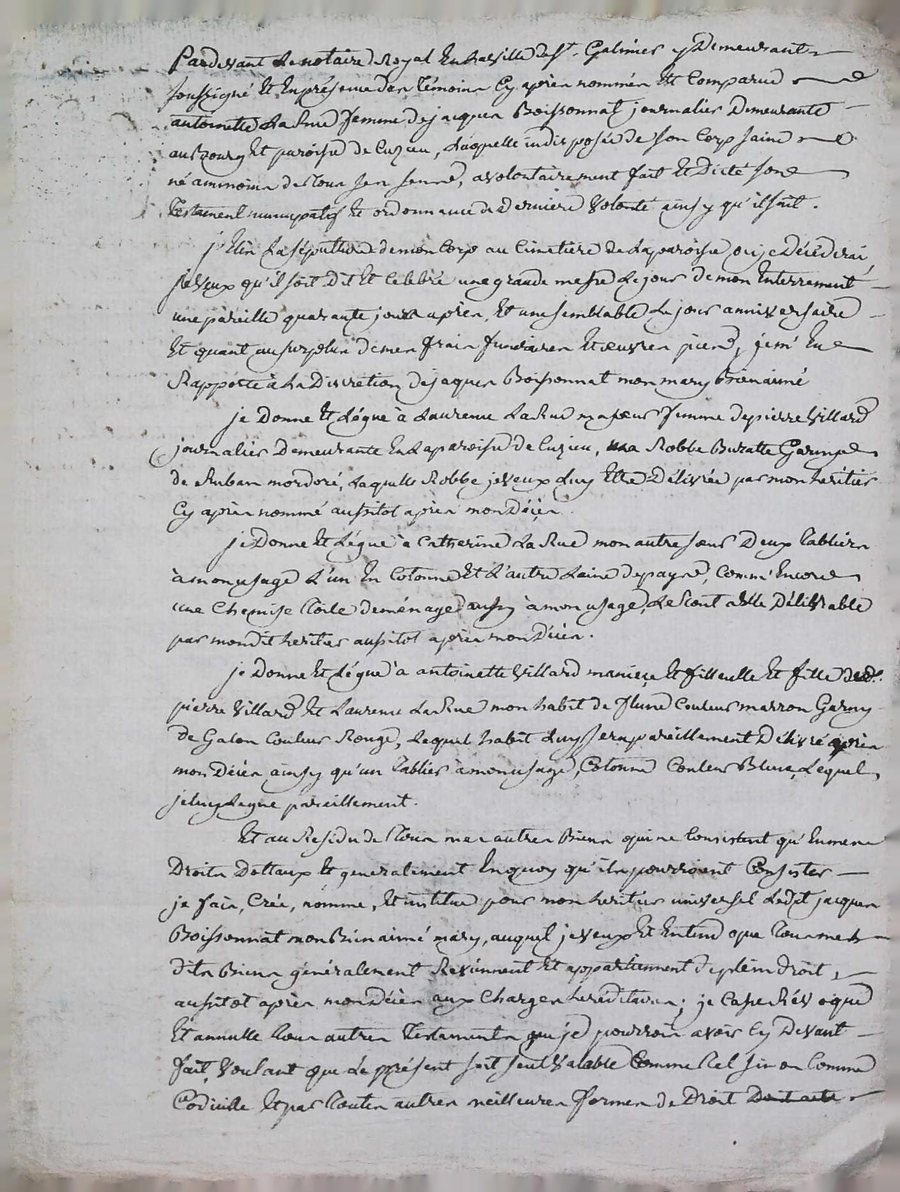 Pardevant Le notaire Royal En la ville de St. Galmier y Demeurant
soussigné Et En présence des Témoins Cy après nommés Est Comparue
antoinette La Rue femme de jacques Boissonnat journalier Demeurante
au Bourg Et paroisse de Cuzieu, Laquelle indisposée de son Corp saine
néammoins de Tous ses sens, a volontairement fait Et Dicté son
Testament nuncupatif Et ordonnance de Derniere Volonté ainsy qu'il suit.
j'Elis La sépulture de mon Corp au Cimetière de La paroisse où je Décéderai,
je veux qu'il soit Dit Et Celebré une grande messe Le jour de mon Enterrement
une pareille quarante jours après, Et une semblable Le jour anniversaire
Et quant au surplus de mes frais funéraires Et œuvres pies, je m'En
Rapporte à La Discretion de jaques Boissonnat mon mary Bienaimé
je Donne Et Légue à Laurence La Rue ma sœur femme de pierre Villard
journalier Demeurante En La paroisse de Cuzieu, ma Robbe Buratte Garnye
de Ruban mordoré, Laquelle Robbe je veux Luy Etre Délivrée par mon heritier
Cy après nommé aussitot après mon Décès.
je Donne Et Légue à Catherine La Rue mon autre sœur Deux Tabliers
à mon usage L'un En Cotonne Et L'autre Laine de pays, Comm' Encore
une Chemise Toile de ménage aussy à mon usage, Le tout a Elle Délivrable
par mondit heritier aussitot après mon Décès.
je Donne Et Légue à antoinette Villard ma niéce Et filleulle Et fille desd.
pierre Villard Et Laurence La Rue mon habit de Couleur marron Garny
de Galon Couleur Rouge, Lequel habit Luy sera pareillement Délivré après
mon Décès, ainsy qu'un Tablier à mon usage, Cotonne Couleur Bleue, Lequel
je luy Legue pareillement.
Et au Résidu de Tous mes autres Biens qui ne Consistent qu'En mes
Droits Dottaux Et generalement En quoy qu'ils pourroient Consister
je fais, Crée, nomme, Et institue pour mon heritier universel Ledit jacques
Boissonnat mon Bienaimé mary, auquel je veux Et Entend que Tous mes
dits Biens généralement Reviennent Et appartiennent de plein Droit,
aussitot après mon Décès aux Charges héréditaires; je Casse Révoque
Et annulle Tous autres Testaments que je pourrois avoir Cy Devant
fait, Voulant que Le présent soit seul Valable Comme Tel sinon Comme
Codicille Et par Toutes autres meilleures formes de Droit Dont acte